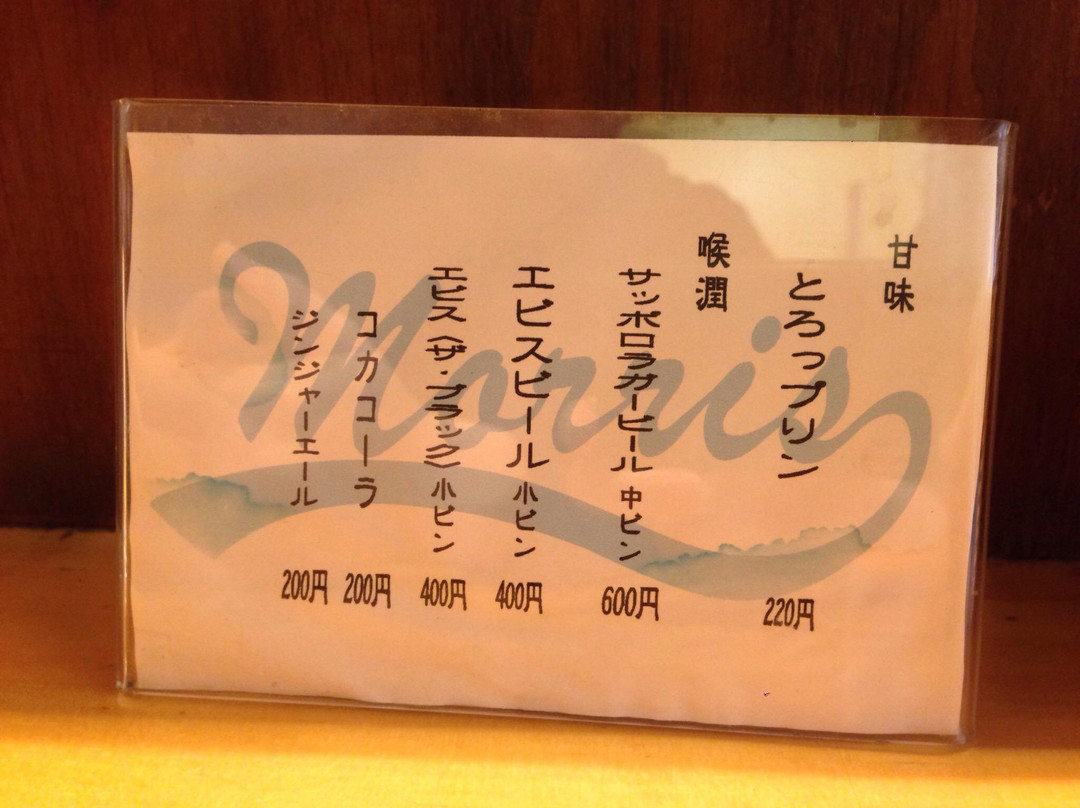 甘味
とろっプリン 220円
喉潤
サッポロラガービール 中ビン 600円
エビスビール 小ビン 400円
エビス〈ザ・ブラック〉小ビン 400円
コカコーラ 200円
ジンジャーエール 200円
Morris